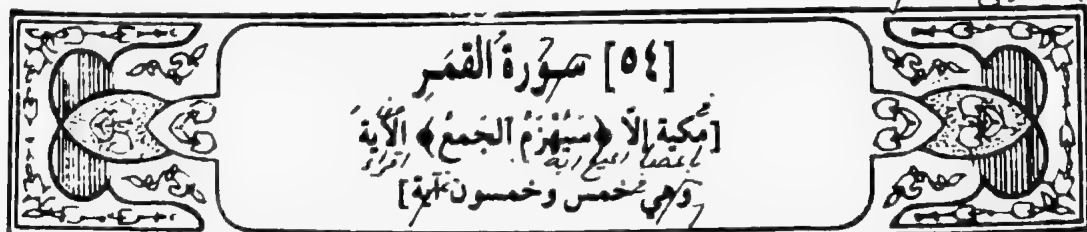 [٥٤] سُورَةُ القَمَرِ
[مكية إلّا ﴿سَيُهْزَمُ الجَمعُ﴾ الآية
وهي خمس وخمسون آية]